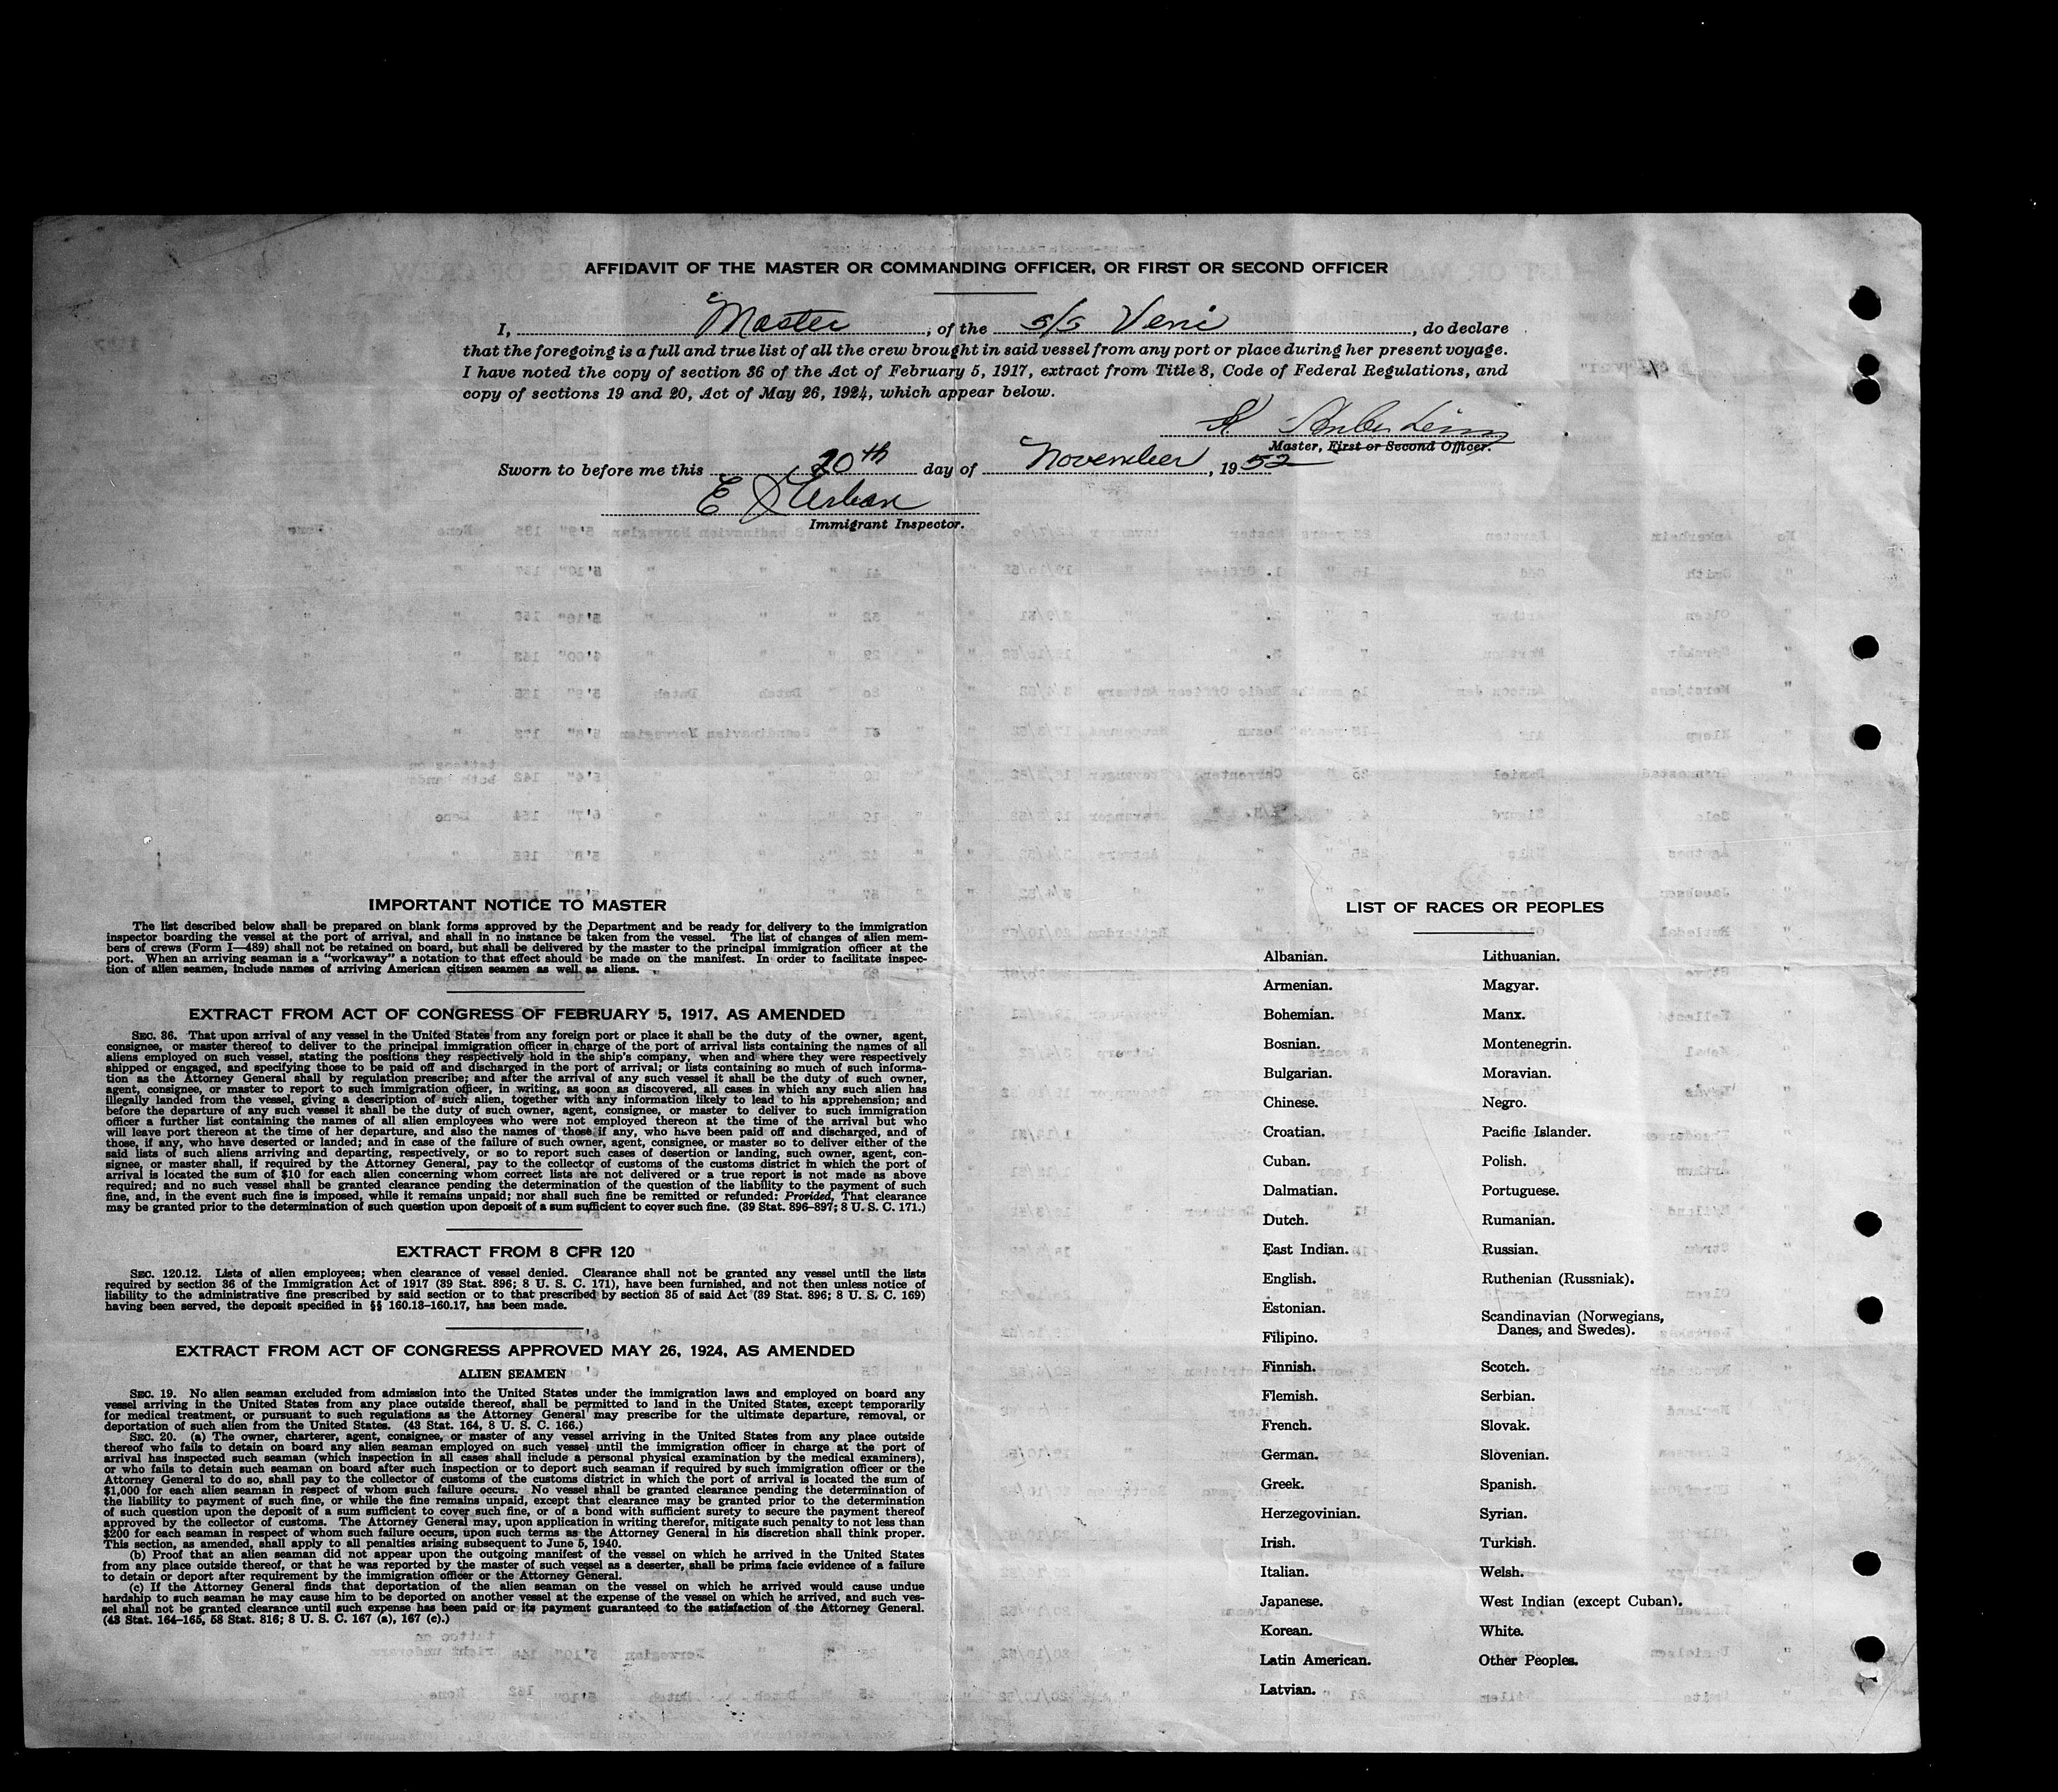 AFFIDAVIT OF THE MASTER OR COMMANDING OFFICER, OR FIRST OR SECOND OFFICER
I, Master, of the s/s Veni, do declare
that the foregoing is a full and true list of all the crew brought in said vessel from any port or place during her present voyage.
I have noted the copy of section 36 of the Act of February 5, 1917, extract from Title 8, Code of Federal Regulations, and
copy of sections 19 and 20, Act of May 26, 1924, which appear below.
Master, First or Second Officer.
Sworn to before me this 20th day of November, 1952
Immigrant Inspector.
IMPORTANT NOTICE TO MASTER
The list described below shall be prepared on blank forms approved by the Department and be ready for delivery to the immigration
inspector boarding the vessel at the port of arrival, and shall in no instance be taken from the vessel. The list of changes of alien mem-
bers of crews (Form I—489) shall not be retained on board, but shall be delivered by the master to the principal immigration officer at the
port. When an arriving seaman is a "workaway" a notation to that effect should be made on the manifest. In order to facilitate inspec-
tion of alien seamen, include names of arriving American citizen seamen as well as aliens.
EXTRACT FROM ACT OF CONGRESS OF FEBRUARY 5, 1917, AS AMENDED
SEC. 36. That upon arrival of any vessel in the United States from any foreign port or place it shall be the duty of the owner, agent,
consignee, or master thereof to deliver to the principal immigration officer in charge of the port of arrival lists containing the names of all
aliens employed on such vessel, stating the positions they respectively hold in the ship's company, when and where they were respectively
shipped or engaged, and specifying those to be paid off and discharged in the port of arrival; or lists containing so much of such informa-
tion as the Attorney General shall by regulation prescribe; and after the arrival of any such vessel it shall be the duty of such owner,
agent, consignee, or master to report to such immigration officer, in writing, as soon as discovered, all cases in which any such alien has
illegally landed from the vessel, giving a description of such alien, together with any information likely to lead to his apprehension; and
before the departure of any such vessel it shall be the duty of such owner, agent, consignee, or master to deliver to such immigration
officer a further list containing the names of all alien employees who were not employed thereon at the time of the arrival but who
will leave port thereon at the time of her departure, and also the names of those if any, who have been paid off and discharged, and of
those, if any, who have deserted or landed; and in case of the failure of such owner, agent, consignee, or master so to deliver either of the
said lists of such aliens arriving and departing, respectively, or so to report such cases of desertion or landing, such owner, agent, con-
signee, or master shall, if required by the Attorney General, pay to the collector of customs of the customs district in which the port of
arrival is located the sum of $10 for each alien concerning whom correct lists are not delivered or a true report is not made as above
required; and no such vessel shall be granted clearance pending the determination of the question of the liability to the payment of such
fine, and, in the event such fine is imposed, while it remains unpaid; nor shall such fine be remitted or refunded: Provided, That clearance
may be granted prior to the determination of such question upon deposit of a sum sufficient to cover such fine. (39 Stat. 896–897; 8 U. S. C. 171.)
EXTRACT FROM 8 CFR 120
SEC. 120.12. Lists of alien employees; when clearance of vessel denied. Clearance shall not be granted any vessel until the lists
required by section 36 of the Immigration Act of 1917 (39 Stat. 896; 8 U. S. C. 171), have been furnished, and not then unless notice of
liability to the administrative fine prescribed by said section or to that prescribed by section 35 of said Act (39 Stat. 896; 8 U. S. C. 169)
having been served, the deposit specified in §§ 160.13–160.17, has been made.
EXTRACT FROM ACT OF CONGRESS APPROVED MAY 26, 1924, AS AMENDED
ALIEN SEAMEN
SEC. 19. No alien seaman excluded from admission into the United States under the immigration laws and employed on board any
vessel arriving in the United States from any place outside thereof, shall be permitted to land in the United States, except temporarily
for medical treatment, or pursuant to such regulations as the Attorney General may prescribe for the ultimate departure, removal, or
deportation of such alien from the United States. (43 Stat. 164, 8 U. S. C. 166.)
SEC. 20. (a) The owner, charterer, agent, consignee, or master of any vessel arriving in the United States from any place outside
thereof who fails to detain on board any alien seaman employed on such vessel until the immigration officer in charge at the port of
arrival has inspected such seaman (which inspection in all cases shall include a personal physical examination by the medical examiners),
or who fails to detain such seaman on board after such inspection or to deport such seaman if required by such immigration officer or the
Attorney General to do so, shall pay to the collector of customs of the customs district in which the port of arrival is located the sum of
$1,000 for each alien seaman in respect of whom such failure occurs. No vessel shall be granted clearance pending the determination of
the liability to payment of such fine, or while the fine remains unpaid, except that clearance may be granted prior to the determination
of such question upon the deposit of a sum sufficient to cover such fine, or of a bond with sufficient surety to secure the payment thereof
approved by the collector of customs. The Attorney General may, upon application in writing therefor, mitigate such penalty to not less than
$200 for each seaman in respect of whom such failure occurs, upon such terms as the Attorney General in his discretion shall think proper.
This section, as amended, shall apply to all penalties arising subsequent to June 5, 1940.
(b) Proof that an alien seaman did not appear upon the outgoing manifest of the vessel on which he arrived in the United States
from any place outside thereof, or that he was reported by the master of such vessel as a deserter, shall be prima facie evidence of a failure
to detain or deport after requirement by the immigration officer or the Attorney General.
(c) If the Attorney General finds that deportation of the alien seaman on the vessel on which he arrived would cause undue
hardship to such seaman he may cause him to be deported on another vessel at the expense of the vessel on which he arrived, and such ves-
sel shall not be granted clearance until such expense has been paid or its payment guaranteed to the satisfaction of the Attorney General.
(43 Stat. 164–165, 58 Stat. 816; 8 U. S. C. 167 (a), 167 (c).)
LIST OF RACES OR PEOPLES
Albanian.
Armenian.
Bohemian.
Bosnian.
Bulgarian.
Chinese.
Croatian.
Cuban.
Dalmatian.
Dutch.
East Indian.
English.
Estonian.
Filipino.
Finnish.
Flemish.
French.
German.
Greek.
Herzegovinian.
Irish.
Italian.
Japanese.
Korean.
Latin American.
Latvian.
Lithuanian.
Magyar.
Manx.
Montenegrin.
Moravian.
Negro.
Pacific Islander.
Polish.
Portuguese.
Rumanian.
Russian.
Ruthenian (Russniak).
Scandinavian (Norwegians,
Danes, and Swedes).
Scotch.
Serbian.
Slovak.
Slovenian.
Spanish.
Syrian.
Turkish.
Welsh.
West Indian (except Cuban).
White.
Other Peoples.